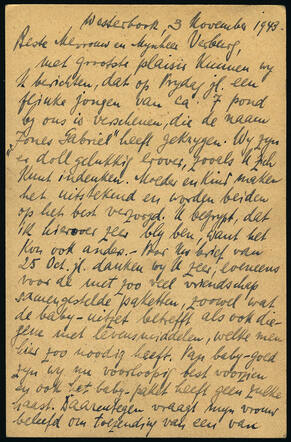 Westerbork, 3 November 1943.
Beste Mevrouw en Mynheer Verberg,
met grootste plaisir kunnen wy
U berichten, dat op Vrydag jl. een
flinke jongen van ca. 7 pond
by ons is verschenen, die de naam
"Jones Gabriel" heeft gekrygen. Wy zyn
er dol gelukkig erover, zooals U zich
kunt indenken. Moeder en kind maken
het uitstekend en worden beiden
op het best verzorgd. U begrypt, dat
ik hierover zeer bly ben, want het
kon ook anders. - Voor Uw brief van
25 Oct. jl. danken wy U zeer, evenens
voor de met zoo veel vriendschap
samengestelde paketten, zoowel wat
de baby-uitzet betrefft als ook die-
gene met levensmiddelen, welke men
hier zoo noodig heeft. Van baby-goed
zyn wy nu voorloopig best voorzien
en ook het baby-paket heeft geen zulke
haast. Daarentegen vraagt myn vrouw
beleefd om toezending van een van